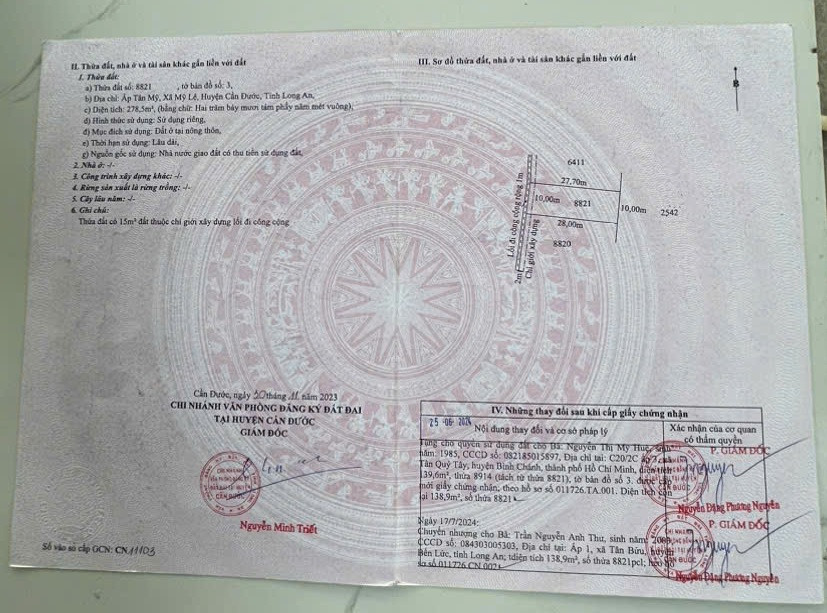 II. Thửa đất, nhà ở và tài sản khác gắn liền với đất
1. Thửa đất:
a) Thửa đất số: 8821 , tờ bản đồ số: 3,
b) Địa chỉ: Ấp Tân Mỹ, Xã Mỹ Lệ, Huyện Cần Đước, Tỉnh Long An,
c) Diện tích: 278,5m², (bằng chữ: Hai trăm bảy mươi tám phẩy năm mét vuông),
d) Hình thức sử dụng: Sử dụng riêng,
đ) Mục đích sử dụng: Đất ở tại nông thôn,
e) Thời hạn sử dụng: Lâu dài,
g) Nguồn gốc sử dụng: Nhà nước giao đất có thu tiền sử dụng đất,
2. Nhà ở: -/-
3. Công trình xây dựng khác: -/-
4. Rừng sản xuất là rừng trồng: -/-
5. Cây lâu năm: -/-
6. Ghi chú:
Thửa đất có 15m² đất thuộc chỉ giới xây dựng lối đi công cộng
Cần Đước, ngày 20 tháng 11 năm 2023
CHI NHÁNH VĂN PHÒNG ĐĂNG KÝ ĐẤT ĐAI
TẠI HUYỆN CẦN ĐƯỚC
GIÁM ĐỐC
CHI NHÁNH
CẦN ĐƯỚC
Nguyễn Minh Triết
Số vào sổ cấp GCN: CN.11103
III. Sơ đồ thửa đất, nhà ở và tài sản khác gắn liền với đất
B
6411
27,70m
10,00m
8821
10,00m
2542
28,00m
8820
Lối đi công cộng rộng 1m
Chỉ giới xây dựng
2m
IV. Những thay đổi sau khi cấp giấy chứng nhận
25-06-2024
Nội dung thay đổi và cơ sở pháp lý
Xác nhận của cơ quan
có thẩm quyền
Tặng cho quyền sử dụng đất cho Bà: Nguyễn Thị Mỹ Huệ, sinh
năm: 1985, CCCD số: 082185015897, Địa chỉ tại: C20/2C ấp 3, xã
Tân Quý Tây, huyện Bình Chánh, thành phố Hồ Chí Minh, diện tích
139,6m², thửa 8914 (tách từ thửa 8821), tờ bản đồ số 3. được cấp
mới giấy chứng nhận; theo hồ sơ số 011726.TA.001. Diện tích còn
lại 138,9m², số thửa 8821
P. GIÁM ĐỐC
Nguyễn Đặng Phương Nguyên
Ngày 17/7/2024:
Chuyển nhượng cho Bà: Trần Nguyễn Anh Thư, sinh năm:
CCCD số: 084303005303, Địa chỉ tại: Ấp 1, xã Tân Bửu, huyện
Bến Lức, tỉnh Long An; diện tích 138,9m², số thửa 8821pcl; hồ
sơ số 011726.CN.002
P. GIÁM ĐỐC
CHI NHÁNH
CẦN ĐƯỚC
Nguyễn Đặng Phương Nguyên